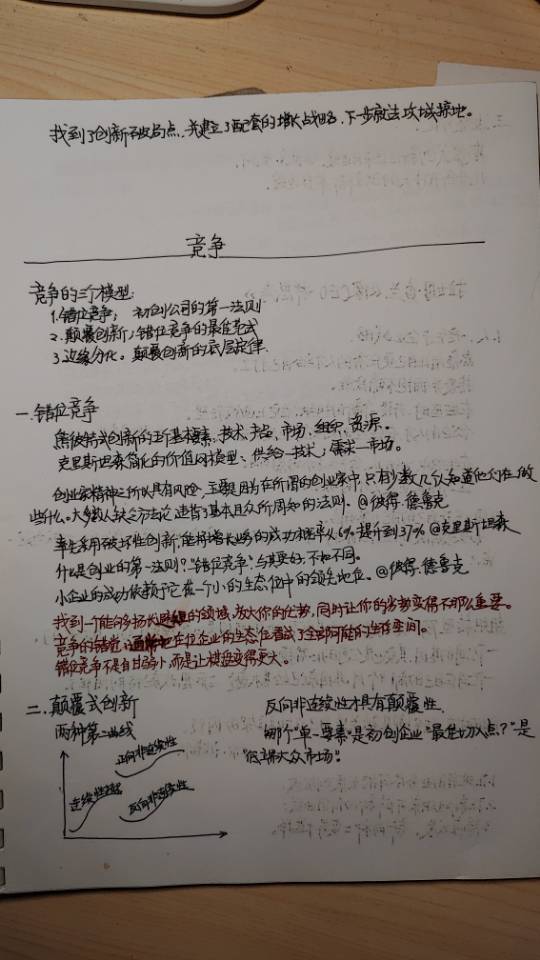 找到了创新破局点，并建立了配套的增长战略，下一步就去攻城掠地。
竞争
竞争的三个模型：
1.错位竞争；初创公司的第一法则
2.颠覆创新；错位竞争的最佳范式
3.边缘分化。颠覆创新的底层定律
一.错位竞争
熊彼特式创新的五个基本要素，技术，产品，市场，组织，资源。
克里斯坦森简化的价值网模型：供给—技术；需求—市场。
创业家精神之所以具有风险，主要因为在所谓的创业家中，只有少数几认知道他们在做
些什么。大多数人缺乏方法论，违背了基本且众所周知的法则。@彼得.德鲁克
率先采用破坏性创新，能将增长业务的成功概率从6%提升到37%@克里斯坦森
什么是创业的第一法则？“错位竞争”与其更好，不如不同。
小企业的成功依赖于它在一个小的生态位中的领先地位。@彼得.德鲁克
找到一个能够扬长避短的领域，放大你的优势，同时让你的劣势变得不那么重要。
竞争的错觉：通常在位企业的生态位看成了全部可能的生存空间。
错位竞争不是自甘弱小，而是让棋盘变得更大。
二.颠覆式创新
两种第二曲线
正向非连续性
连续性
反向非连续性
反向非连续性才具有颠覆性。
哪个“单一要素”是初创企业“最佳切入点？”是
“低端大众市场”